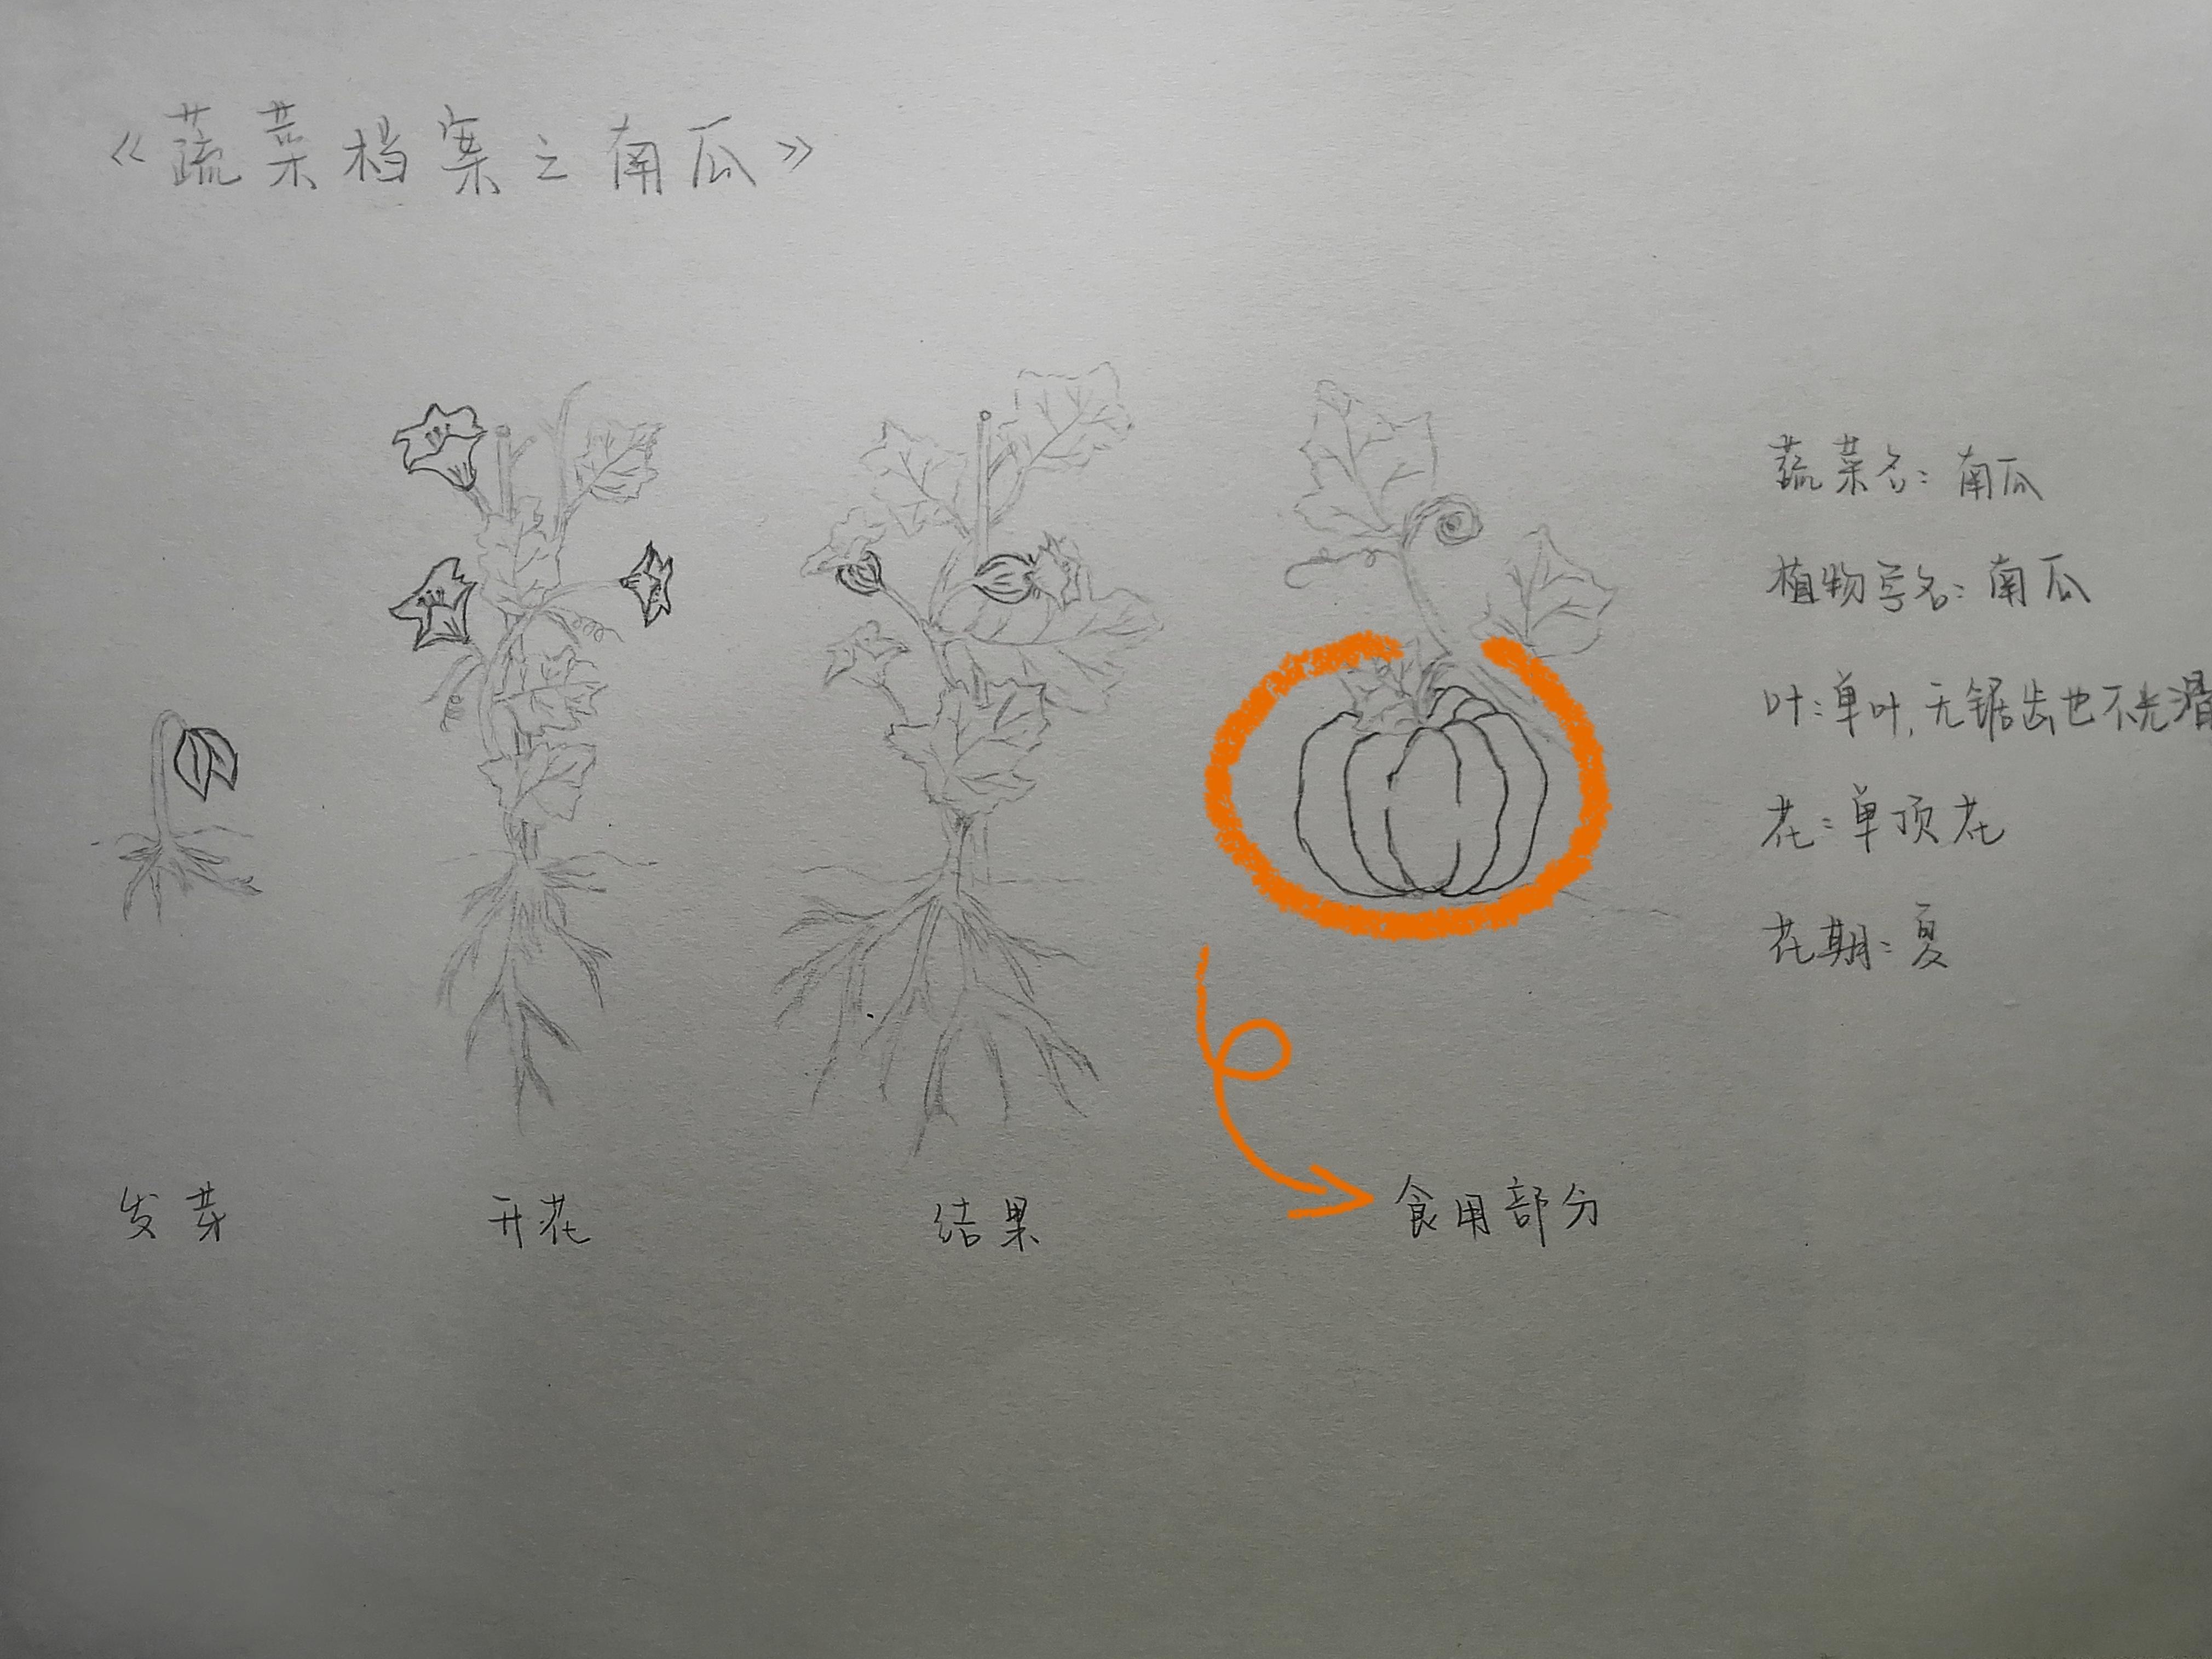 《蔬菜档案之南瓜》
蔬菜名：南瓜
植物写名：南瓜
叶：单叶，无锯齿也不光滑
花：单顶花
花期：夏
发芽
开花
结果
食用部分